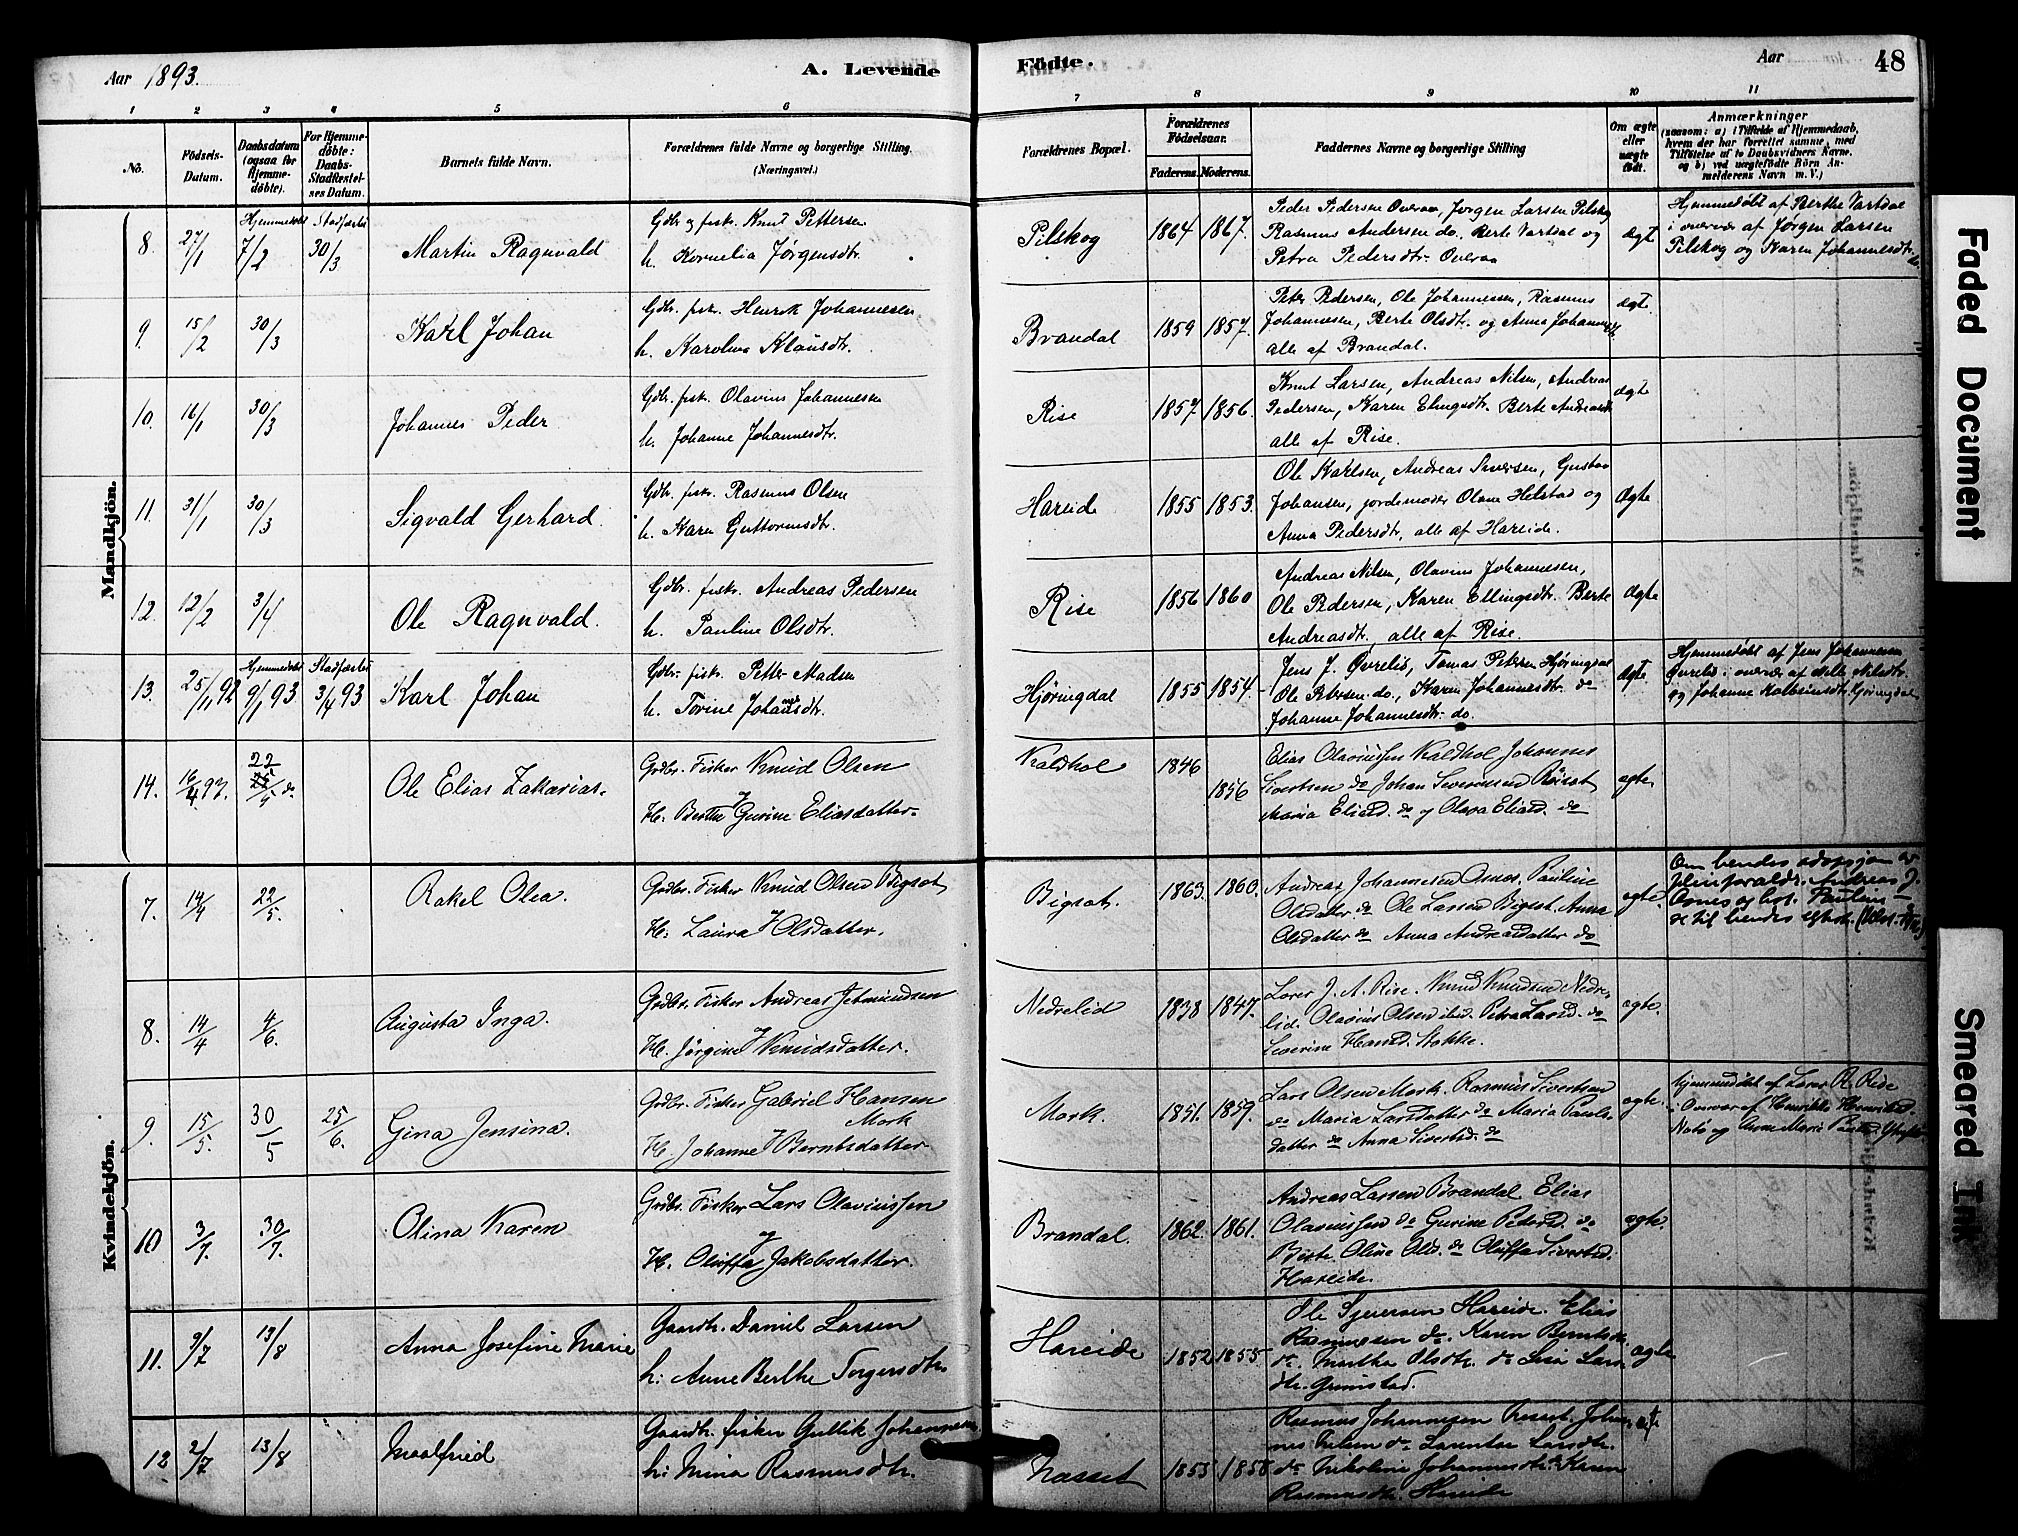 Aar 1893.
A. Levende Födte.
Aar
48
1 2 3 4 5 6 7 8 9 10 11
No.
Födsels-Datum.
Daabsdatum (ogsaa for Hjemme-döbte).
For Hjemme-döbte: Daabs-Stadfæstel-ses Datum.
Barnets fulde Navn.
Forældrenes fulde Navne og borgerlige Stilling. (Næringsvei.)
Forældrenes Bopæl.
Forældrenes Födselsaar.
Faderens. Moderens.
Faddernes Navne og borgerlige Stilling
Om ægte eller uægte födt.
Anmærkninger
(saasom: a) i Tilfælde af Hjemmedaab,
hvem der har forrettet samme, med
Tilföielse af to Daabsvidners Navne,
og b) ved uægtefödte Börn An-
melderens Navn m. V.)
Mandkjön.
8. 27/1 Hjemmedøbt 7/2 Stadfæstet 30/3 Martin Ragnvald
Gdbr. og fisk. Knut Pettersen
h. Kornelia Jørgensdtr.
Pilskog 1864 1867.
Peder Pedersen Overaa, Jørgen Larsen Pilskog
Rasmus Andersen do. Berte Vartdal og
Petra Pedersdtr. Overaa
Ægt
Hjemmedøbt af Berthe Vartdal
i overvær af Jørgen Larsen
Pilskog og Karen Johannesdtr.
9. 15/2 30/3 Karl Johan
Gdbr. fisk. Henrik Johannesen
h. Karolina Klausdtr.
Brandal 1859 1857.
Peter Pedersen, Ole Johannessen, Rasmus
Johannesen, Berte Olsdtr. og Anna Johannesd.
alle af Brandal.
ægte
10. 16/1 30/3 Johannes Peder
Gdbr. fisk. Olavius Johannesen
h. Johanne Johannesdtr.
Rise 1857 1856.
Knut Larsen, Andreas Nilsen, Andreas
Pedersen, Karen Elingsdtr. Berte Andreasdt
alle af Rise.
ægte
11. 31/1 30/3 Sigvald Gerhard.
Gdbr. fisk. Rasmus Olsen
h. Karen Guttormsdtr.
Hareide 1855 1853.
Ole Karlsen, Andreas Siversen, Gustav
Johansen, jordemoder Olave Helstad og
Anna Pedersdtr, alle af Hareide.
Ægte
12. 12/2 3/4 Ole Ragnvald.
Gdbr. fisk. Andreas Pedersen
h. Pauline Olsdtr.
Rise 1856 1860
Andreas Nilsen, Olavius Johannesen,
Ole Pedersen, Karen Ellingsdtr. Berte
Andreasdt. alle af Rise.
Ægte
13. 25/1 92 Hjemmedøbt 9/1 93 Stadfæstet 3/4 93 Karl Johan
Gdbr. fisk. Petter Madsen
h. Torine Johansdtr.
Hjøringdal 1855 1854.
Jens J. Øvrelid, Tomas Petersen Hjøringdal
Ole Petersen do, Karen Johannesdtr. do
Johanne Johannesdtr. do.
Ægte
Hjemmedøbt af Jens Johannesen
Øvrelid i overvær af Mille Nilsdtr.
og Johanne Kolbeinsdt. Hjøringdal
14. 16/4 93. 22/5 do. Ole Elias Zakarias.
Grdbr. Fisker Knud Olsen
og
H. Berthe Gurine Eliasdatter.
Kaldhol 1846 1856
Elias Olaviussen Kaldhol Johannes
Sivertsen do Johan Severinsen Røiset
Maria Eliasd. do og Olava Eliasd. do
ægte.
Kvindekjön.
7. 14/4 22/5. Rakel Olea.
Grdbr. Fisker Knud Olsen Bigset
og
H: Laura Olsdatter.
Bigset. 1863. 1860.
Andreas Johannesen Osnes. Pauline
Olsdatter do Ole Larsen Bigset. Anna
Olsdatter do Anna Andreasdatter do
ægte.
Om hendes adopsjon av
pleieforældr. Andreas J.
Osnes og hst. Pauline
8. 14/4 4/6. Augusta Inga.
Grdbr. Fisker Andreas Jetmundsen
og
H. Jørgine Knudsdatter.
Nedrelid 1838 1847.
Lærer J. A. Rise. Knud Knudsen Nedre-
lid. Olavius Olsen ibid. Petra Larsd. do
Severine Hansd. Stokke.
ægte.
9. 15/5. 30/5 25/6. Gina Jensina.
Grdbr. Fisker Gabriel Hansen
Mork
og
H. Johanne Berntsdatter
Mork. 1851. 1859.
Lars Olsen Mork. Rasmus Sivertsen
do Maria Larsdatter do Maria Pauls-
datter do Anna Sivertsd. do
ægte.
Hjemmedøbt af Lærer R. Rise
10 3/7. 30/7. Olina Karen
Grdbr. Fisker Lars Olaviussen
og
H. Oluffa Jakobsdatter.
Brandal. 1862. 1861.
Andreas Larsen Brandal Elias
Olaviussen do Gurine Pedersd. do
Birte Oline Olsd. do Oluffa Sivertsd.
Hareide.
ægte.
11. 9/7 13/8 Anna Josefine Marie
Gaardbr. Daniel Larsen
h: Anne Berthe Torgersdtr
Hareide 1852 1855
Ole Sjursen Hareide. Elias
Rasmussen do. Karen Berntsdtr.
do. Martha Olsdtr. do Lisa Lars-
dtr. Grimstad.
ægte
12 2/7 13/8 Maalfried
Gaardbr. fisker Gullik Johannesen
h: Mina Rasmusdtr.
Næsset 1855 1858
Rasmus Johannesen Næsset. Johan-
nes Nelsen do Larentse Larsdtr.
do Nikoline Johannesdtr. Karen
Rasmusdtr. Hareide
ægt.
Faded Document
Smeared Ink